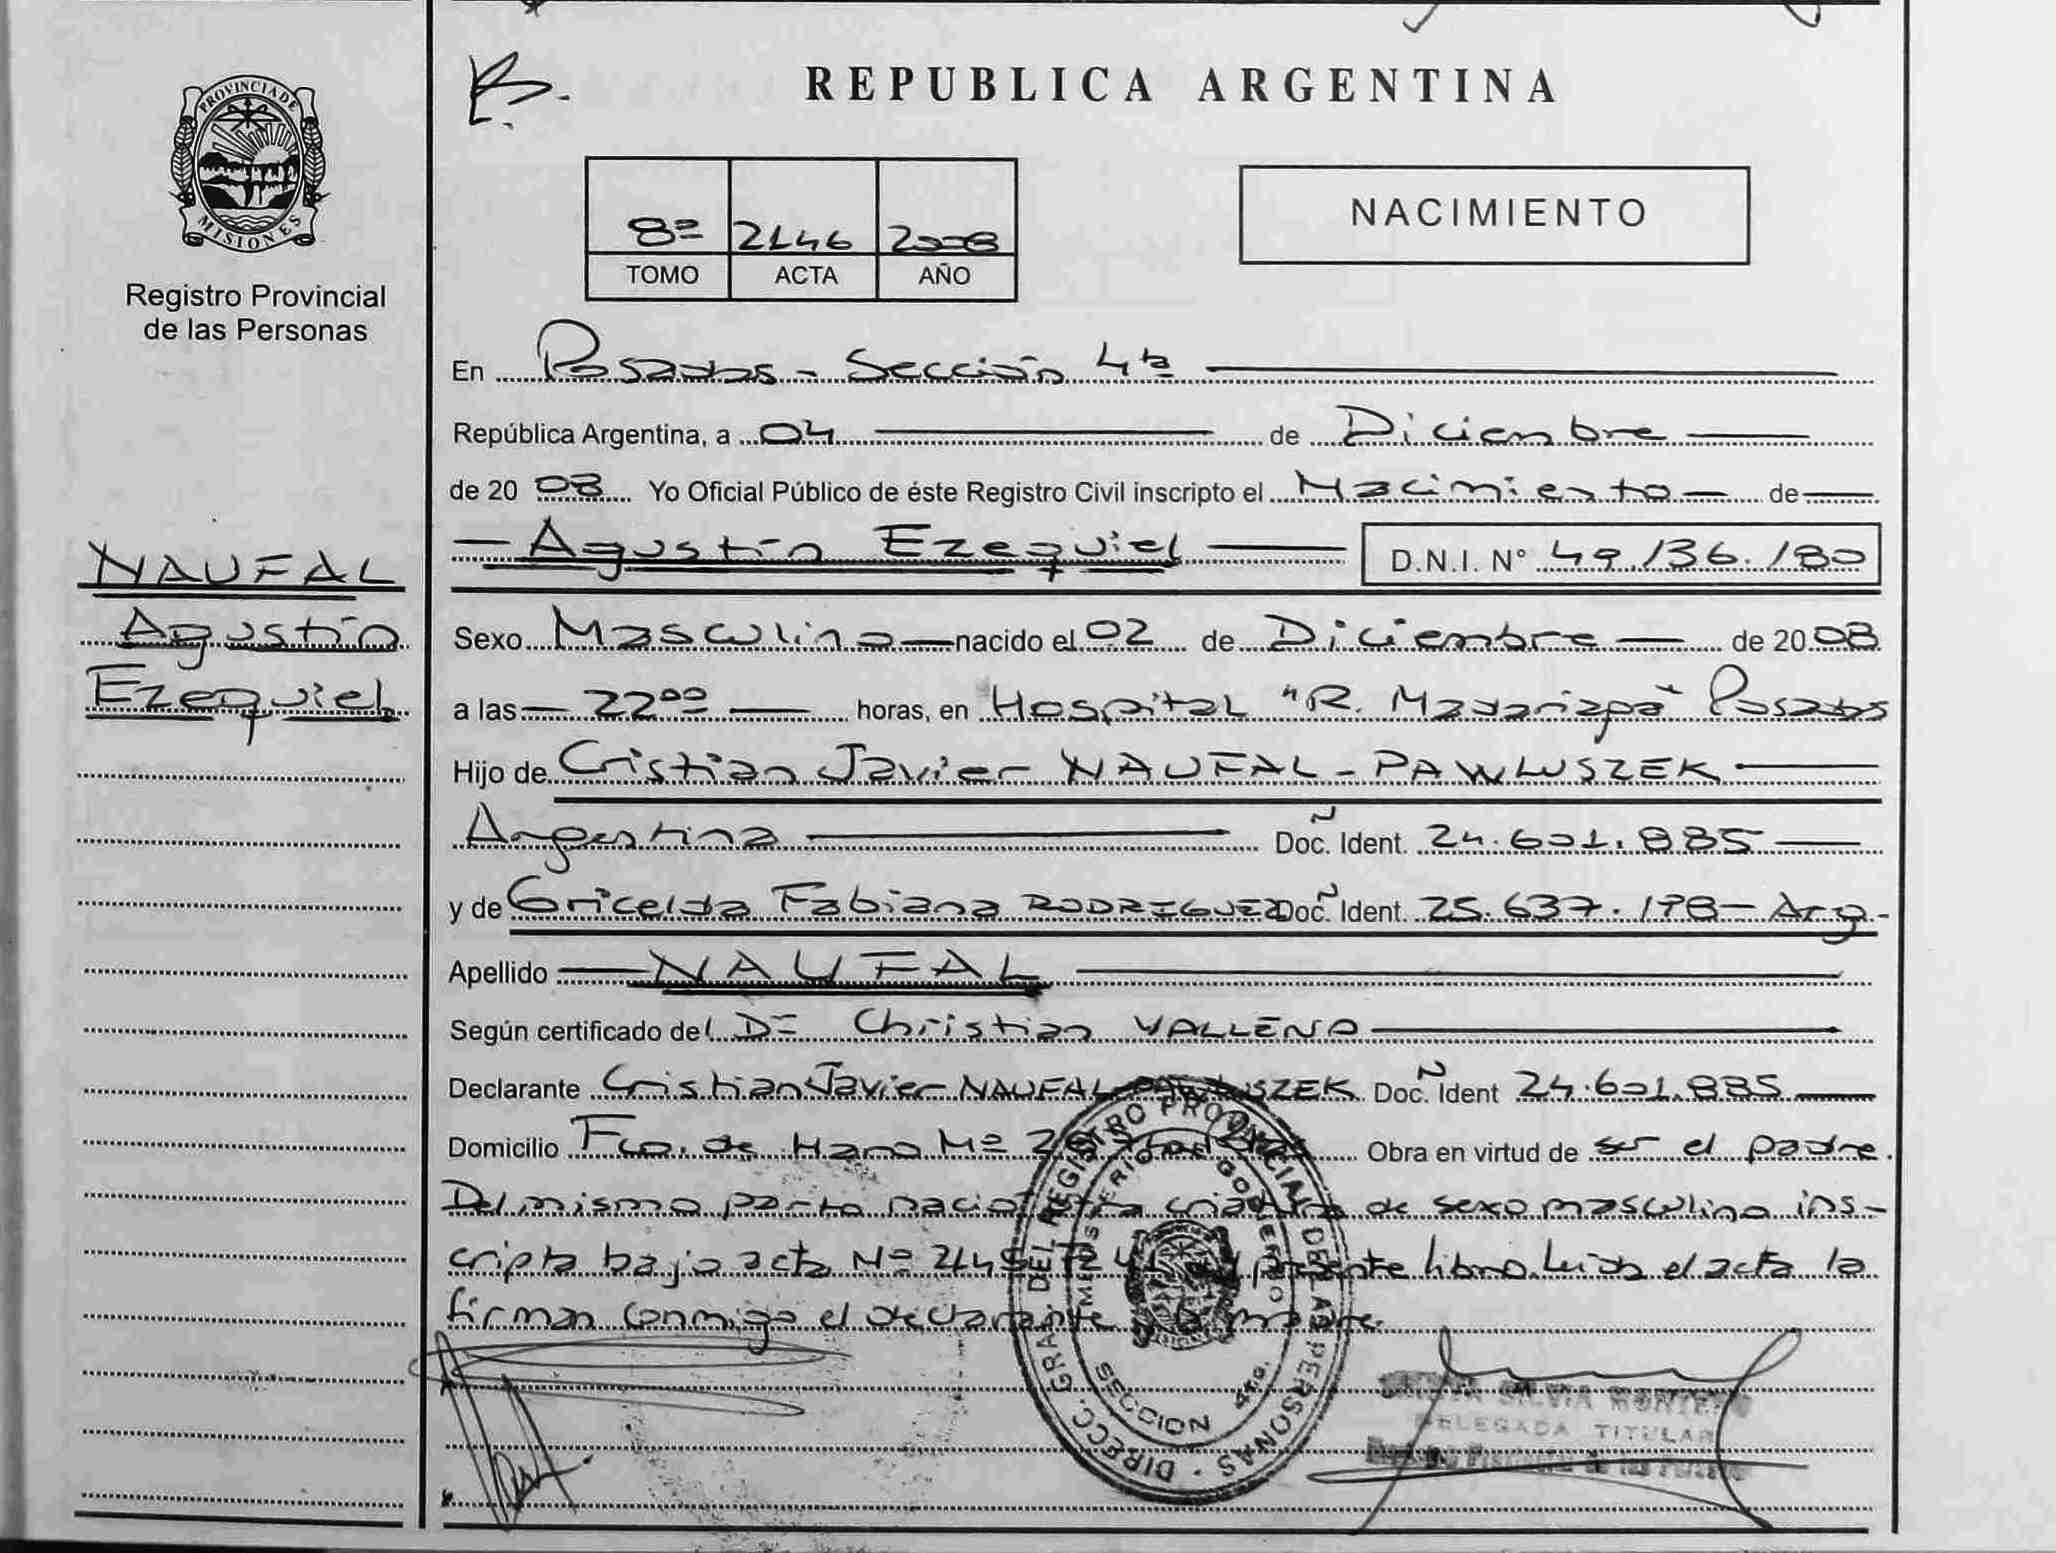 PROVINCIA DE
MISIONES
Registro Provincial
de las Personas
REPUBLICA ARGENTINA
NACIMIENTO
8º 2146 2008
TOMO ACTA AÑO
En Posadas - Sección 4ta
República Argentina, a 04 de Diciembre
de 2008 Yo Oficial Público de éste Registro Civil inscripto el Nacimiento de
Agustín Ezequiel D.N.I. N° 49.136.180
NAUFAL
Agustín
Ezequiel
Sexo Masculino nacido el 02 de Diciembre de 2008
a las 22:00 horas, en Hospital "R. Madariaga" Posadas
Hijo de Cristian Javier NAUFAL - PAWLUSZEK
Argentina Doc. Ident. 24.601.885
y de Gricelda Fabiana RODRIGUEZ Doc. Ident. 25.637.178 - Arg.
Apellido NAUFAL
Según certificado del Dr Christian VALLENO
Declarante Cristian Javier NAUFAL PAWLUSZEK Doc. Ident 24.601.885
Domicilio Fco. de Haro Nº Obra en virtud de ser el padre.
Del mismo parto nació otra criatura de sexo masculino ins-
cripta bajo acta Nº 2145 Tº presente libro. Leida el acta la
firman conmigo el declarante y la madre.
DIRECC. GRAL. DEL REGISTRO PROVINCIAL DE LAS PERSONAS
MINISTERIO DE GOBIERNO
SECCION 4ta.
SILVIA MONTERO
DELEGADA TITULAR
Registro Provincial de las Personas